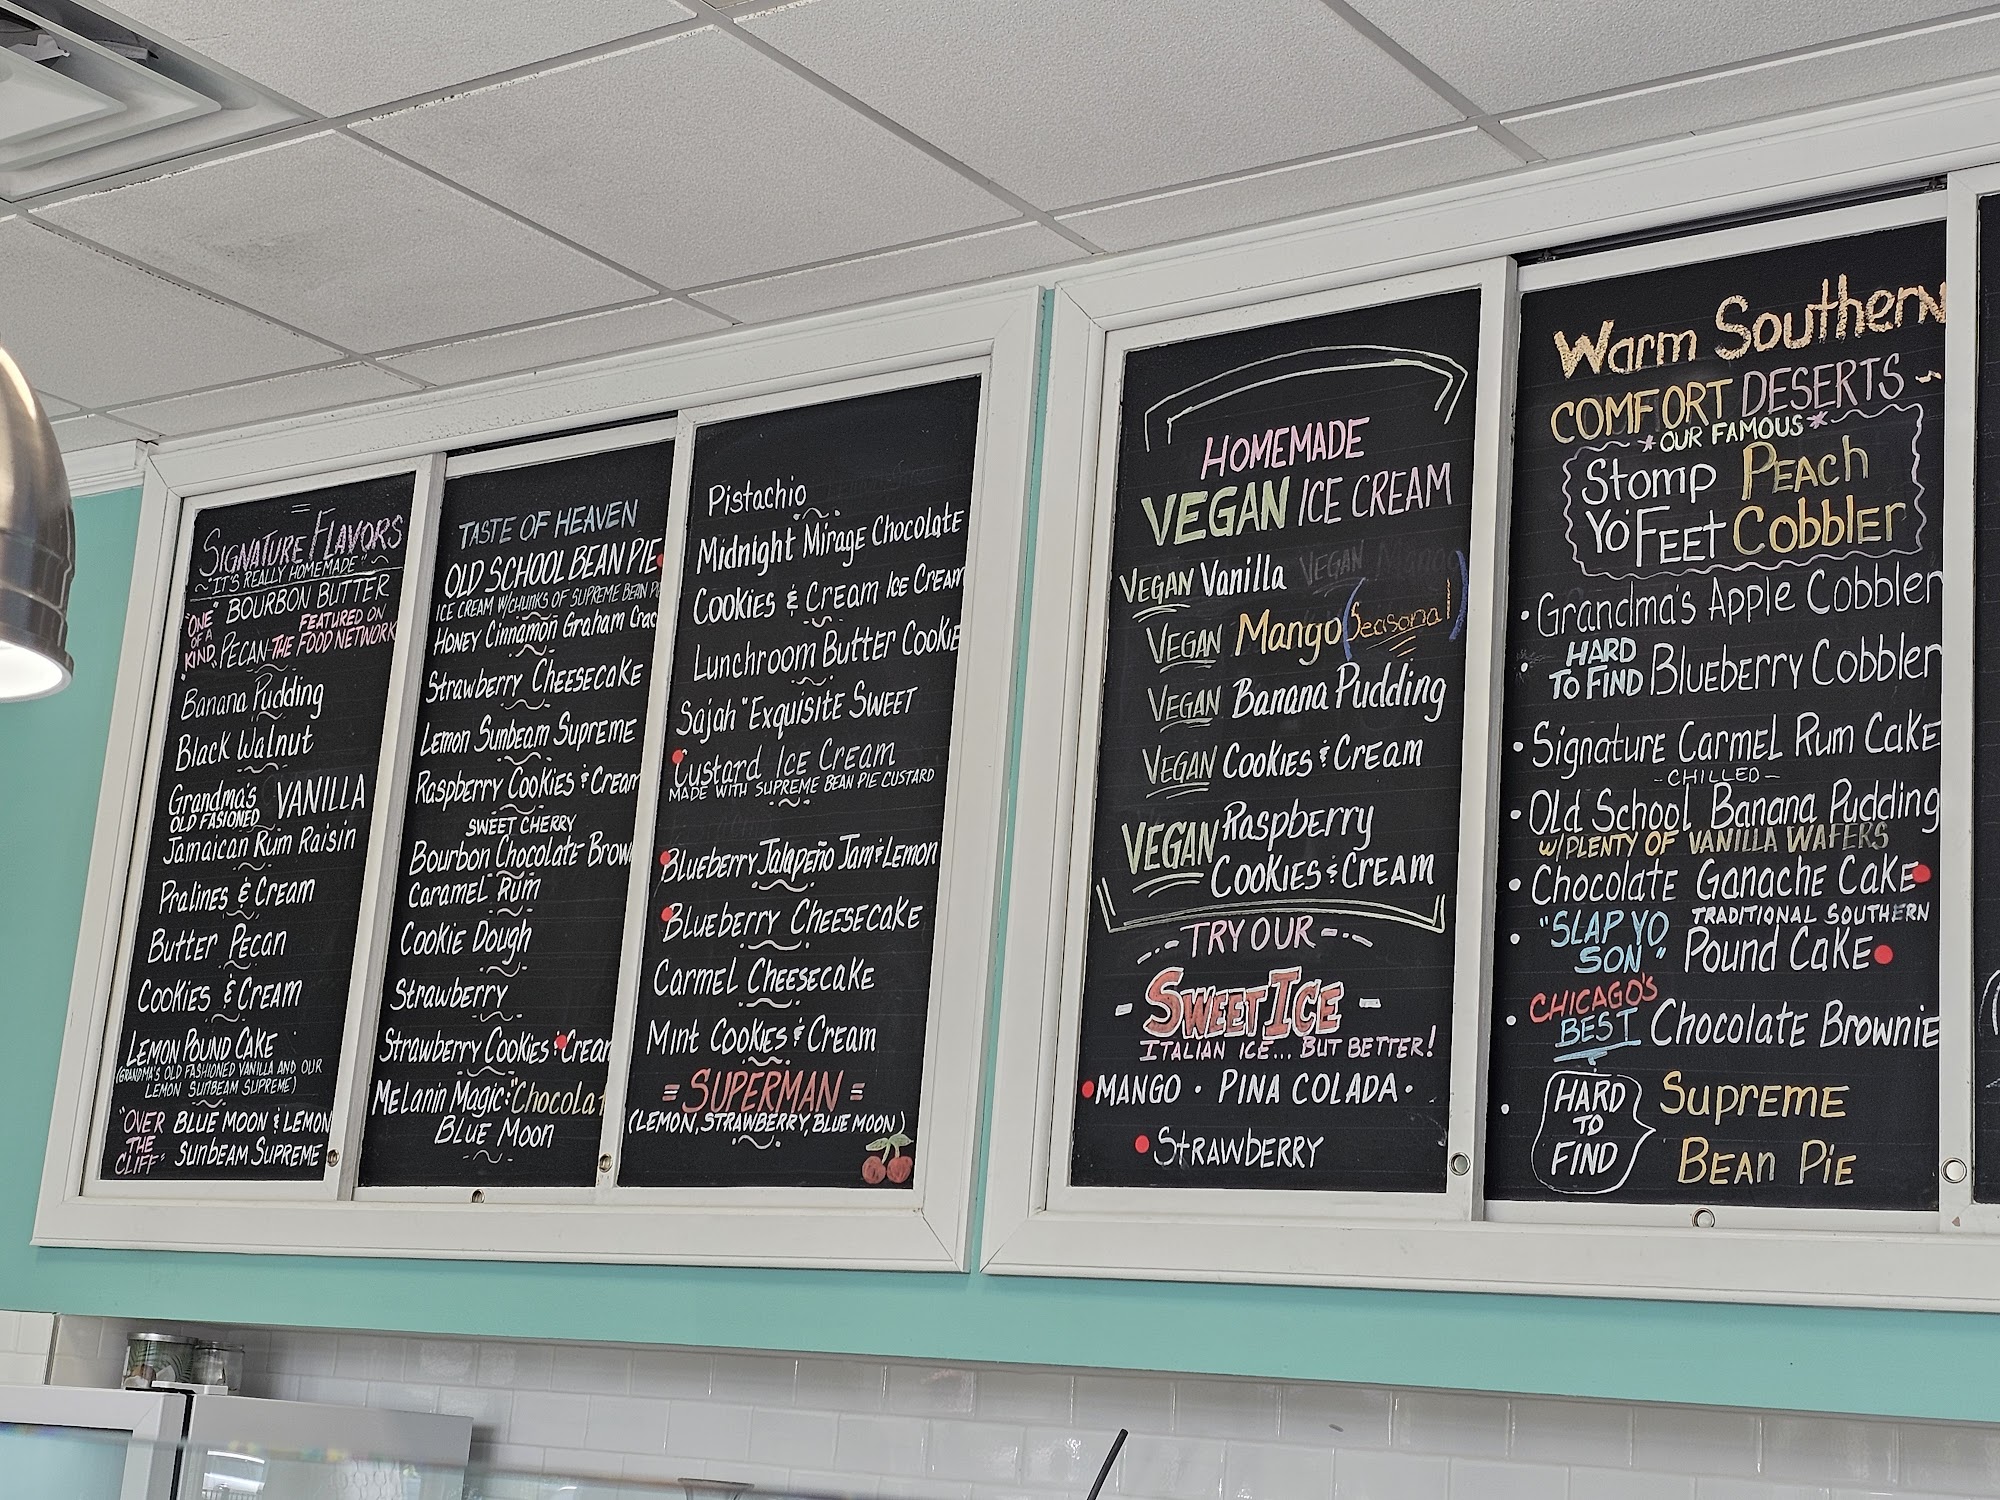 SIGNATURE FLAVORS
~"IT'S REALLY HOMEMADE"~
"ONE OF A KIND" BOURBON BUTTER
PECAN-THE FOOD NETWORK
FEATURED ON
Banana Pudding
Black Walnut
Grandma's VANILLA
OLD FASIONED
Jamaican Rum Raisin
Pralines & Cream
Butter Pecan
Cookies & Cream
LEMON POUND CAKE
(GRANDMA'S OLD FASHIONED VANILLA AND OUR
LEMON SUNBEAM SUPREME)
"OVER THE CLIFF" BLUE MOON & LEMON
SUNBEAM SUPREME
TASTE OF HEAVEN
OLD SCHOOL BEAN PIE
ICE CREAM W/CHUNKS OF SUPREME BEAN PI
HONEY Cinnamon Graham Crac
Strawberry Cheesecake
Lemon Sunbeam Supreme
Raspberry Cookies & Cream
SWEET CHERRY
Bourbon Chocolate Brow
Caramel Rum
Cookie Dough
Strawberry
Strawberry Cookies & Crear
Melanin Magic: "Chocolat
Blue Moon
Pistachio
Midnight Mirage Chocolate
Cookies & Cream Ice Cream
Lunchroom Butter Cookie
Sajah "Exquisite Sweet
Custard Ice Cream
MADE WITH SUPREME BEAN PIE CUSTARD
Blueberry Jalapeño Jam & Lemon
Blueberry Cheesecake
Carmel Cheesecake
Mint Cookies & Cream
= SUPERMAN =
(LEMON, STRAWBERRY, BLUE MOON)
HOMEMADE
VEGAN ICE CREAM
VEGAN Vanilla
VEGAN Mango (Seasonal)
VEGAN Banana Pudding
VEGAN Cookies & Cream
VEGAN Raspberry
Cookies & Cream
TRY OUR
- SWEET ICE -
ITALIAN ICE... BUT BETTER!
MANGO • PINA COLADA •
STRAWBERRY
Warm Southern
COMFORT DESERTS ~
~*OUR FAMOUS*~
Stomp PEACH
Yo' FEET Cobbler
• Grandma's Apple Cobbler
• HARD TO FIND Blueberry Cobbler
• Signature Carmel Rum Cake
- CHILLED -
• Old School Banana Pudding
W/PLENTY OF VANILLA WAFERS
• Chocolate Ganache Cake
• "SLAP YO SON" TRADITIONAL SOUTHERN
Pound Cake
• CHICAGO'S BEST Chocolate Brownie
• HARD TO FIND SUPREME
BEAN PIE